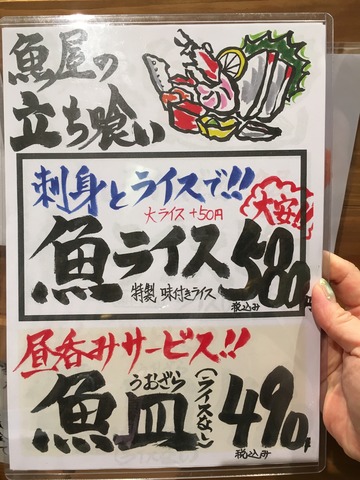 魚屋の
立ち喰い
刺身とライスで!!
大ライス +50円
大安!!
魚ライス 580円
特製 味付きライス
税込み
昼呑みサービス!!
うおざら
魚皿 (ライスなし) 490円
税込み